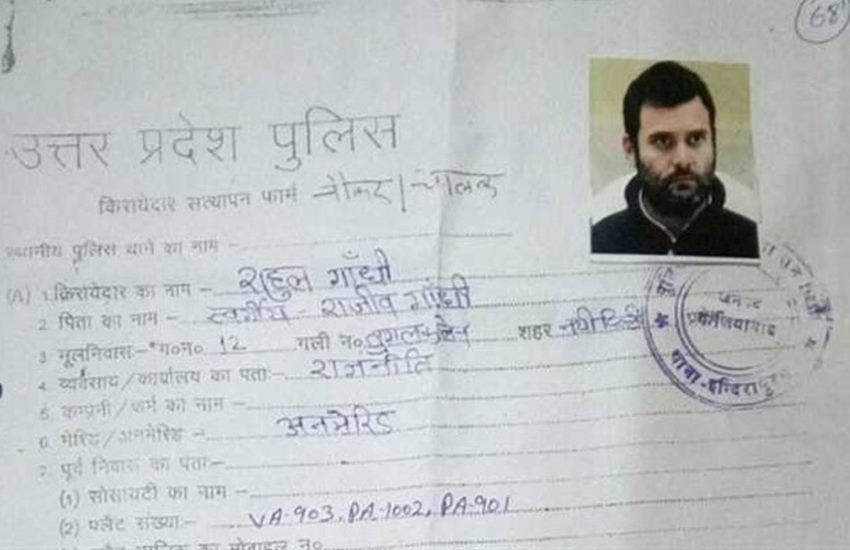 68
उत्तर प्रदेश पुलिस
किरायेदार सत्यापन फार्म नौकर/चालक
स्थानीय पुलिस थाने का नाम –
(A) 1. किरायेदार का नाम – राहुल गाँधी
2. पिता का नाम – स्वर्गीय - राजीव गांधी
3. मूलनिवास:- म०न० 12 गली न० तुगलक लेन शहर नयी दिल्ली
4. व्यवसाय/कार्यालय का पता:- राजनीति
5. कम्पनी/फर्म का नाम –
6. मैरिड/अनमैरिड – अनमेरिड
7. पूर्व निवास का पता:–
(1) सोसायटी का नाम –
(2) फ्लैट संख्या:- VA-903, PA-1002, PA-901
जनपद
थाना-इन्दिरापुरम